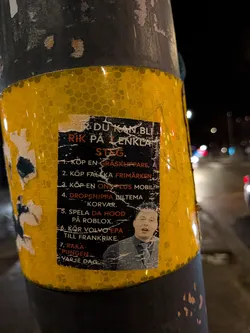 DU KAN BLI
RIK PÅ 7 ENKLA
STEG.
1. KÖP EN GRÄSKLIPPARE.
2. KÖP FALSKA FRIMÄRKEN.
3. KÖP EN ONEPLUS MOBIL.
4. DROPSHIPPA BILTEMA
KORVAR.
5. SPELA DA HOOD
PÅ ROBLOX.
6. KÖR VOLVO EPA
TILL FRANKRIKE.
7.
VARJE DAG.